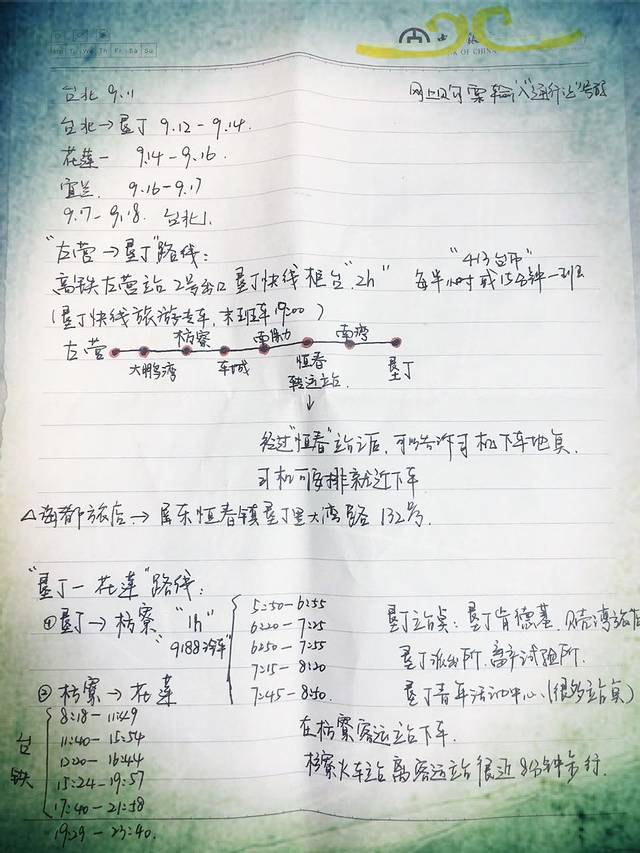 Mo Tu We Th Fr Sa Su
OF CHINA
台北 9.11
网上订票输入"通行证"号码
台北→垦丁 9.12-9.14.
花莲- 9.14-9.16.
宜兰. 9.16-9.17
9.17-9.18. 台北.
"左营→垦丁"路线:
"413台币"
高铁左营站 2号出口 垦丁快线柜台"2h" 每半小时或15分钟一班
(垦丁快线旅游专车,末班车19:00)
左营 大鹏湾 枋寮 车城 南 恒春转运站 南湾 垦丁
↓
经过"恒春"站之后,可以告诉司机下车地点.
司机可安排就近下车
△海都旅店→屏东恒春镇垦丁里大湾路132号.
"垦丁-花莲"路线:
①垦丁→枋寮 "1h"
"9188冷车"
5:50-6:55
6:20-7:25
6:50-7:55
7:15-8:20
7:45-8:50.
垦丁站点:垦丁肯德基.贝壳湾旅店
垦丁派出所.畜产试验所.
垦丁青年活动中心.(很多站点)
②枋寮→花莲
台铁
8:18-11:49
11:40-15:54
12:20-16:44
15:24-19:57
17:40-21:58
19:29-23:40.
在枋寮客运站下车.
枋寮火车站离客运站很近8分钟步行.